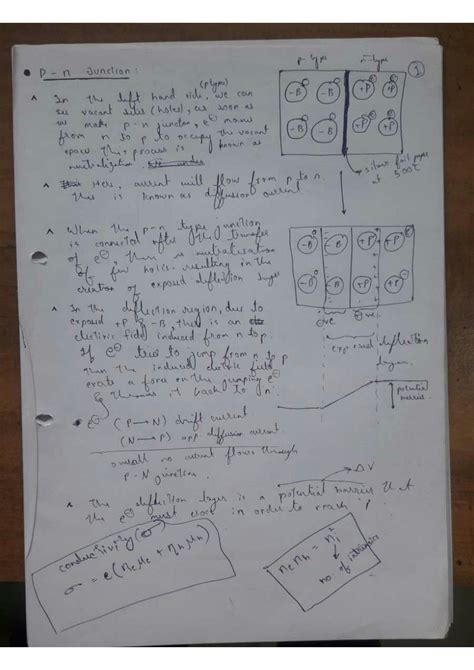 P-n Junction:
(p type)
In the left hand side, we can
see vacant sites (holes), as soon as
we make p-n junction, e⊖ moves
from n to p to occupy the vacant
space. This process is known as
neutralization
Here, current will flow from p to n.
This is known as diffusion current
When the p-n type junction
is connected after the transfer
of e⊖, there is neutralisation
of few holes resulting in the
creation of exposed deflection layer
In the deflection region, due to
exposed +P & -B, there is an
electric field induced from n to p.
If e⊖ tries to jump from n to p
then the induced electric field
create a force on the jumping e⊖
& throws it back to 'n'.
e⊖ (P→N) drift current
(N→P) opp. diffusion current
overall no current flows through
P-N junction.
The deflection layer is a potential barrier that
the e⊖ must cross in order to reach P
conductivity (σ)
σ = e(neμe + nhμh)
ne nh = ni²
no of intrinsic
p-type
n-type
1
-B -B +P +P
-B -B +P +P
at 500°C
-B -B +P +P
-B -B +P +P
-ve +ve
exposed deflection
layer
potential
barrier
ΔV